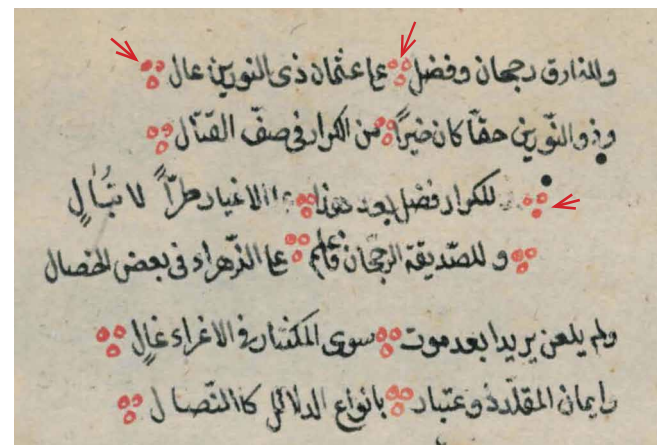 وللفارق رجحان وفضل علی عثمان ذی النورین عال
وذو النّورین حقّا كان خیرًا من الكرار فی صفّ القتال
للكرار فضل بعد هذا علی الاغیار طرّاً لا تُبالِ
و للصدّیقة الرجحان فاعلم علی الزّهراء فی بعض الخصال
ولم یلعن یزیدا بعد موت سوی المكثار فی الاغراء غالٍ
وایمان المقلّد ذو عتبار بانواع الدلائل كالنّصال